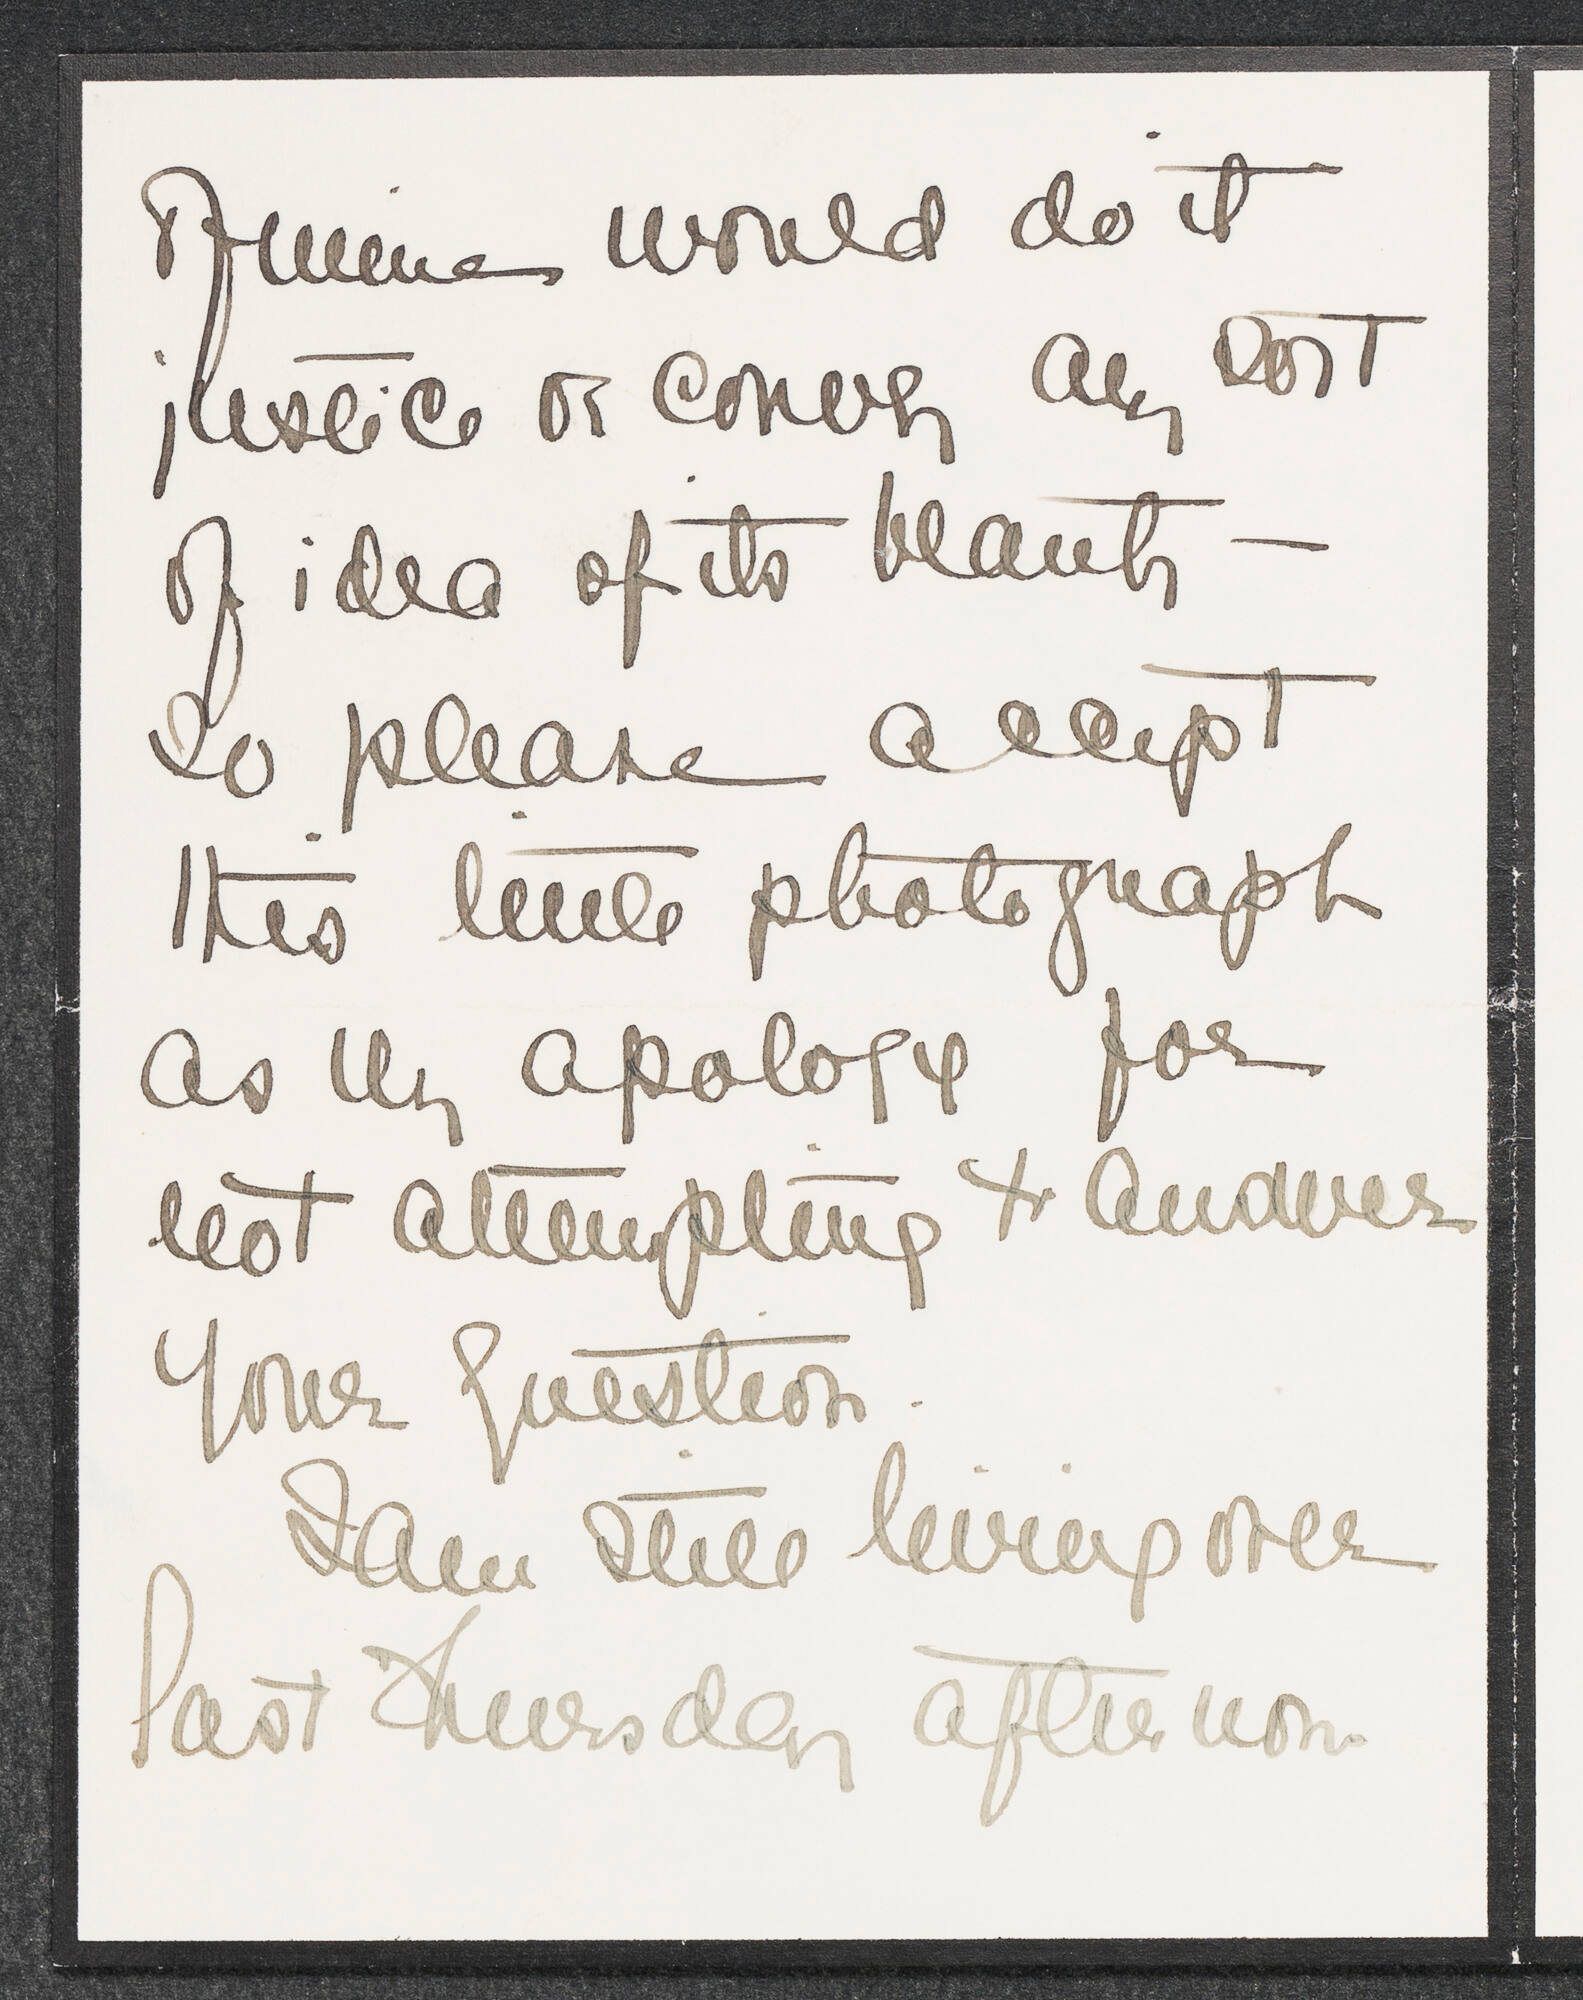 of mine would do it
justice or convey any sort
of idea of its beauty —
So please accept
this little photograph
as my apology for
not attempting to answer
your question.
I am still living over
last Thursday afternoon